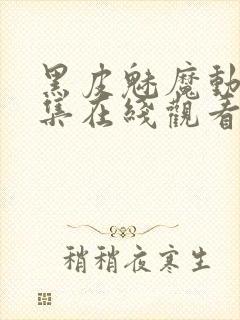 黑皮魅魔動
集在綫觀看
稍稍夜寒生